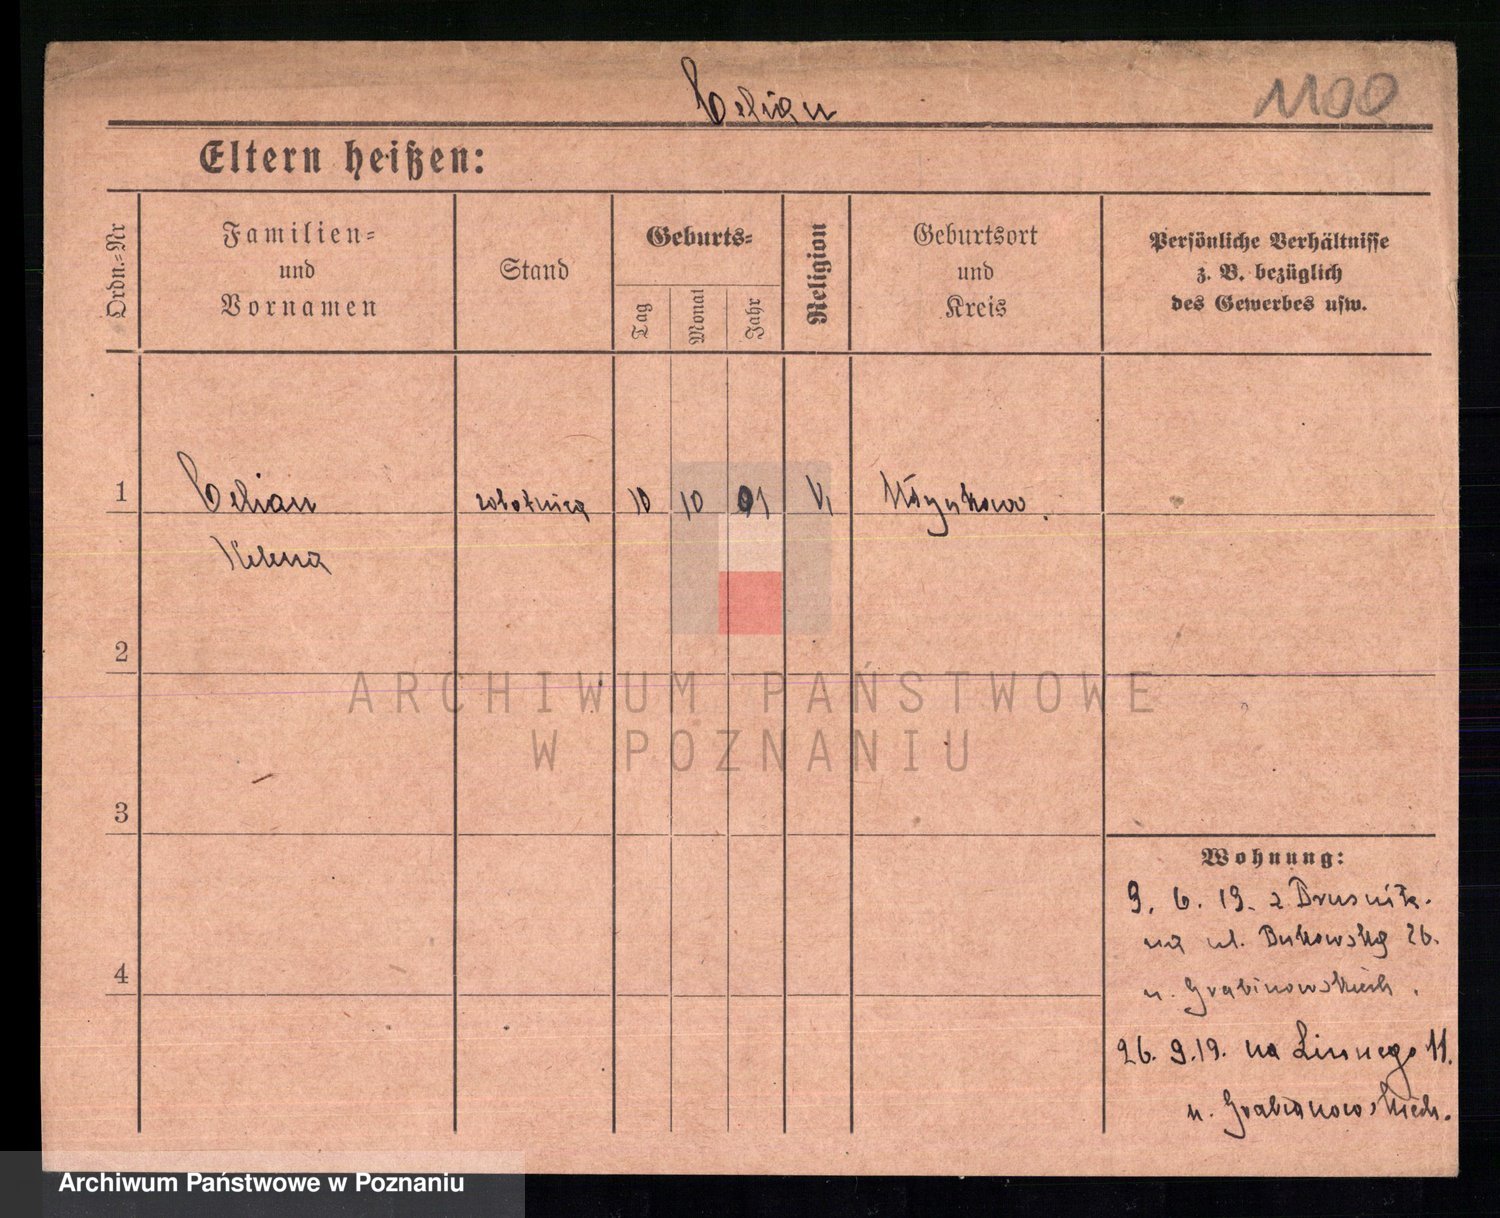 Celian
1100
Eltern heißen:
Ordn.-Nr
Familien- und Vornamen
Stand
Geburts-
Tag
Monat
Jahr
Religion
Geburtsort und Kreis
Persönliche Verhältnisse
z. B. bezüglich
des Gewerbes usw.
1 Celian robotnica 10 10 01 Młynkowo.
Helena
2
3
4
Wohnung:
9. 6. 19. z
na ul. Bukowską 26.
u. Grabinowskich.
26. 9. 19. na Linnego 11.
u. Grabianowskich.
ARCHIWUM PAŃSTWOWE
W POZNANIU
Archiwum Państwowe w Poznaniu